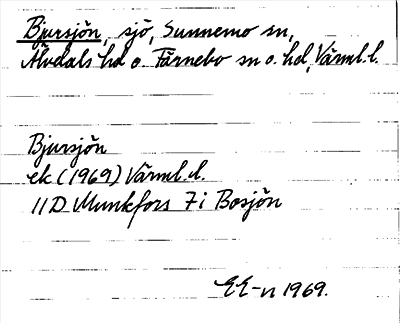 Bjursjön, sjö, Sunnemo sn,
Älvdals hd o. Färnebo sn o. hd, Värml. l.
Bjursjön
ek (1969) Värml. l.
11D Munkfors 7i Bosjön
EE-n 1969.